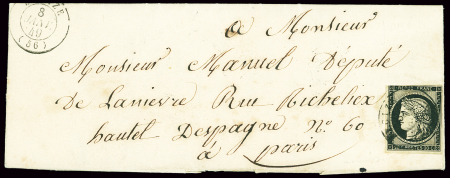 8
JANV
49
(56)
a Monsieur
Monsieur Manuel Député
De Lanievre Rue Richeliex
hautel Despagne No. 60
à paris
REPUB. FRANC.